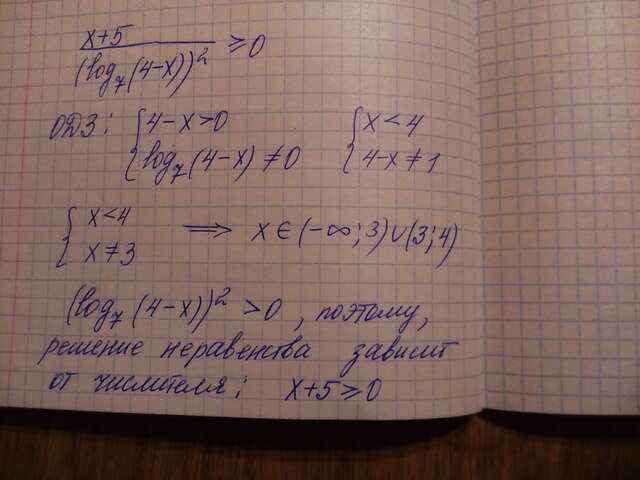 x+5
(log₇(4-x))² ≥0
ОДЗ: { 4-x>0 { x<4
log₇(4-x) ≠0 4-x≠1
{ x<4
x≠3 ⟹ x∈(-∞;3)∪(3;4)
(log₇(4-x))² >0, поэтому,
решение неравенства зависит
от числителя: x+5≥0